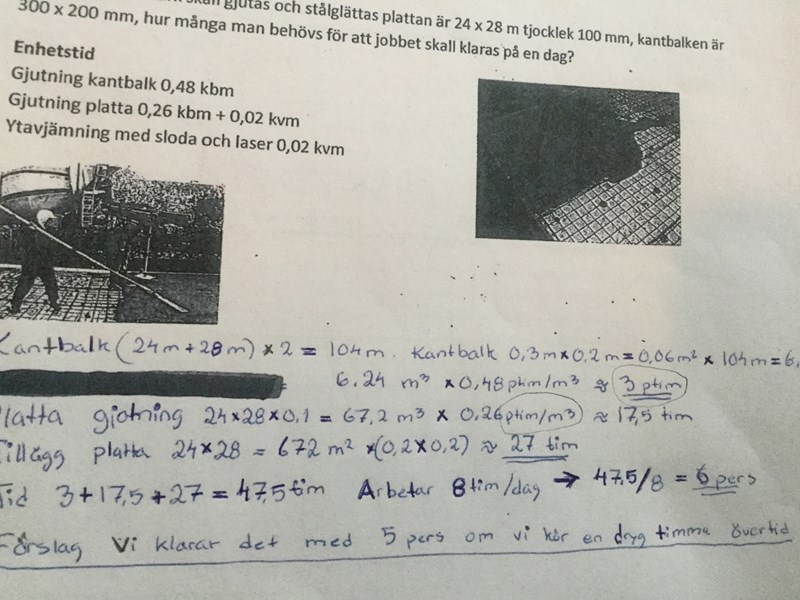 gjutas och stålglättas plattan är 24 x 28 m tjocklek 100 mm, kantbalken är
300 x 200 mm, hur många man behövs för att jobbet skall klaras på en dag?
Enhetstid
Gjutning kantbalk 0,48 kbm
Gjutning platta 0,26 kbm + 0,02 kvm
Ytavjämning med sloda och laser 0,02 kvm
Kantbalk (24m+28m) x 2 = 104m. Kantbalk 0,3m x 0,2m = 0,06m² x 104m = 6,
6.24 m³ x 0,48 ptim/m³ ≈ 3 ptim
Platta gjotning 24x28x0,1 = 67,2 m³ x 0,26 ptim/m³ ≈ 17,5 tim
Tillägg platta 24x28 = 672 m² x(0,2x0,2) ≈ 27 tim
Tid 3+17,5+27 = 47,5 tim Arbetar 8tim/dag → 47,5/8 = 6 pers
Förslag Vi klarar det med 5 pers om vi kör en dryg timma övertid